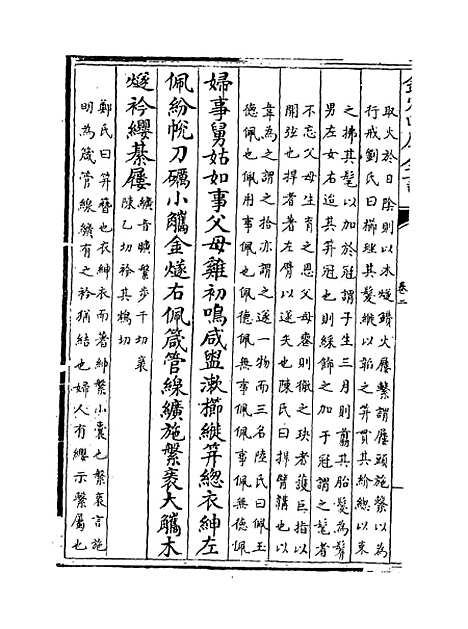 欽定四庫全書
卷二
取火於日陰則以木燧鑽火屨繫謂屨頭施繫以為
行戒劉氏曰櫛理其髮縰以韜之笄貫其紒緫以束
之拂其髦以加於冠謂子生三月則翦其胎髮為鬌
男左女右迨其笄冠也則綵飾之加于冠謂之髦者
不忘父母生育之恩父母喪則徹之玦者護巨指以
開弦也捍者著左臂以遂矢也陳氏曰捍臂鞲也以
韋為之謂之拾亦謂之遂一物而三名陸氏曰佩玉
德佩也佩用事佩也佩德佩無事佩佩事佩無德佩
婦事舅姑如事父母雞初鳴咸盥漱櫛縰笄緫衣紳左
佩紛帨刀礪小觿金燧右佩箴管線纊施縏袠大觿木
燧衿纓綦屨
纊音曠縏步干切袠
陳乙切衿其鴆切
鄭氏曰笄簪也衣紳衣而著紳縏小囊也縏袠言施
明為箴管線纊有之衿猶結也婦人有纓示繫屬也